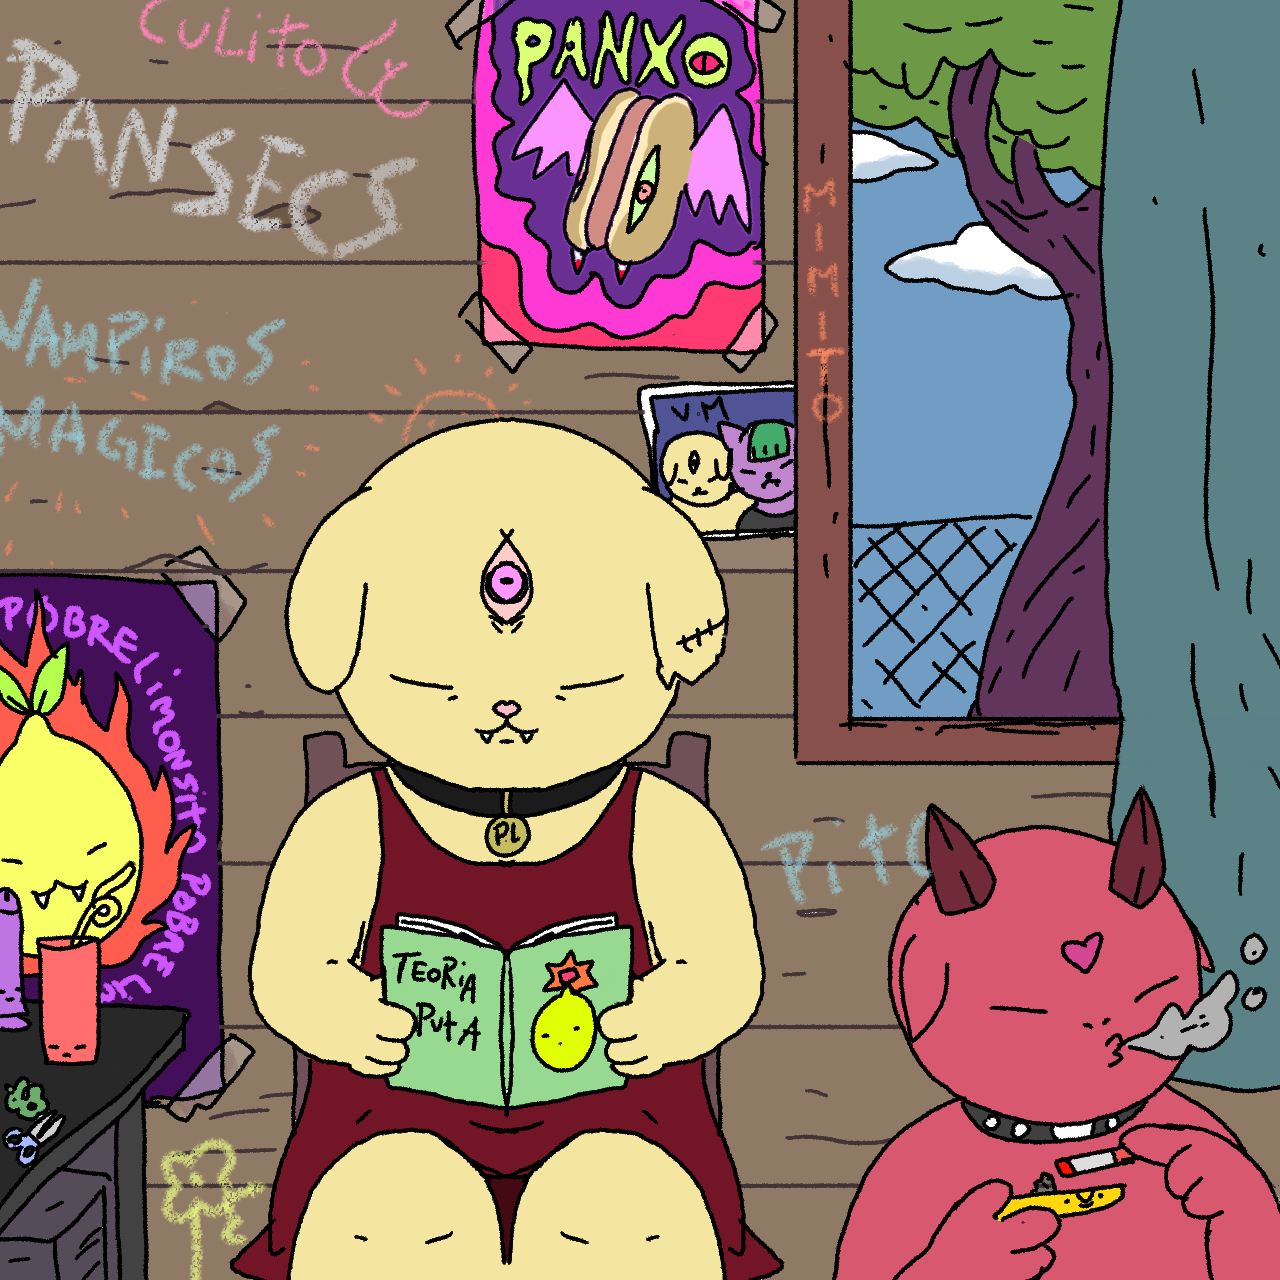 CULiTO
PANSECS
PANXO
VAMPiROS
MAGICOS
MIMITO
V.M
POBRELiMONSiTO POBRELi
P.L
TEORiA
PUTA
PiTO